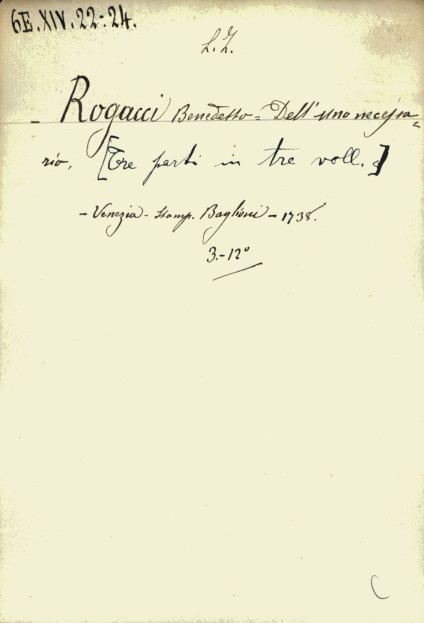 6E.XIV.22-24.
L.Z.
- Rogacci Benedetto = Dell'uno necessa=
rio. [Tre parti in tre voll.]
- Venezia - Stamp. Baglioni - 1738.
3.-12°
C